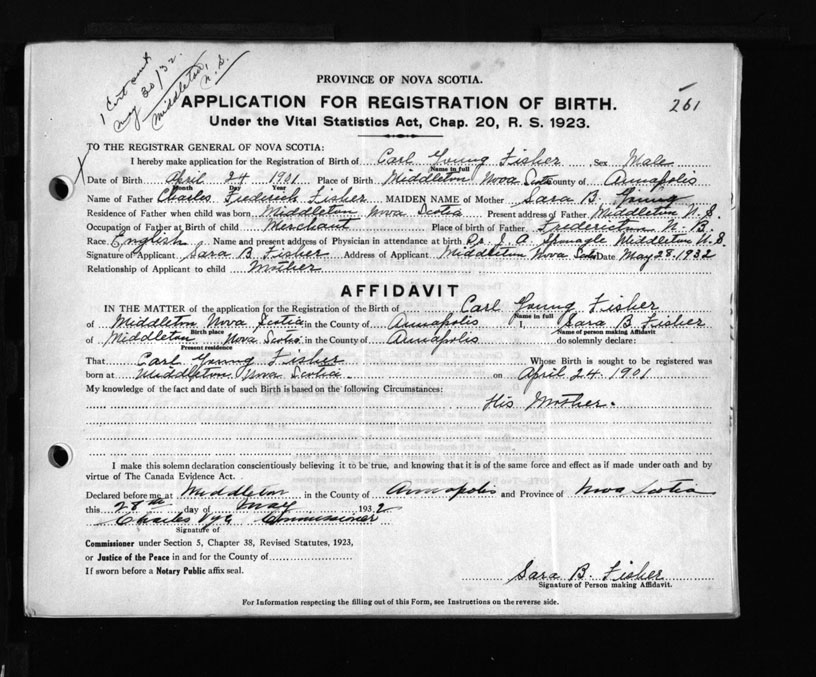 1 Cert sent
May 30/32.
Middleton,
N.S.
PROVINCE OF NOVA SCOTIA.
261
APPLICATION FOR REGISTRATION OF BIRTH.
Under the Vital Statistics Act, Chap. 20, R. S. 1923.
TO THE REGISTRAR GENERAL OF NOVA SCOTIA:
I hereby make application for the Registration of Birth of Carl Young Fisher Sex Male
Name in full
X Date of Birth April 24 1901 Place of Birth Middleton Nova Scotia County of Annapolis
Month Day Year
Name of Father Charles Frederick Fisher MAIDEN NAME of Mother Sara B. Young
Residence of Father when child was born Middleton Nova Scotia Present address of Father Middleton N.S.
Occupation of Father at Birth of child Merchant Place of birth of Father Fredericton N.B.
Race English Name and present address of Physician in attendance at birth Dr. J. A. Sponagle Middleton N.S.
Signature of Applicant Sara B Fisher Address of Applicant Middleton Nova Scotia Date May 28. 1932
Relationship of Applicant to child Mother
AFFIDAVIT
IN THE MATTER of the application for the Registration of the Birth of Carl Young Fisher
Name in full
of Middleton Nova Scotia in the County of Annapolis I, Sara B Fisher
Birth place Name of person making Affidavit
of Middleton Nova Scotia in the County of Annapolis do solemnly declare:
Present residence
That Carl Young Fisher Whose Birth is sought to be registered was
born at Middleton Nova Scotia on April 24. 1901
My knowledge of the fact and date of such Birth is based on the following Circumstances:
His Mother.
I make this solemn declaration conscientiously believing it to be true, and knowing that it is of the same force and effect as if made under oath and by
virtue of The Canada Evidence Act.
Declared before me at Middleton in the County of Annapolis and Province of Nova Scotia
this 28th day of May 1932
Charles Commissioner
Signature of
Commissioner under Section 5, Chapter 38, Revised Statutes, 1923,
or Justice of the Peace in and for the County of
If sworn before a Notary Public affix seal.
Sara B. Fisher
Signature of Person making Affidavit.
For Information respecting the filling out of this Form, see Instructions on the reverse side.